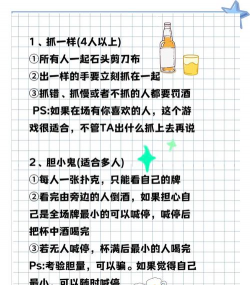 1、抓一样(4人以上)
①所有人一起石头剪刀布
②出一样的手要立刻抓在一起
③抓错、抓慢或者不抓的人都要罚酒
PS:如果在场有你喜欢的人，这个游
戏很适合，不管TA出什么抓上去再说
2、胆小鬼(适合多人)
①每人一张扑克，只能看自己的牌
②看完由旁边的人倒酒，如果担心自
己是全场牌最小的可以喊停，喊停后
把杯中酒喝完
③若无人喊停，杯满后最小的人喝完
Ps:考验胆量，可以骗。如果觉得自己
最小，可以随时喊停